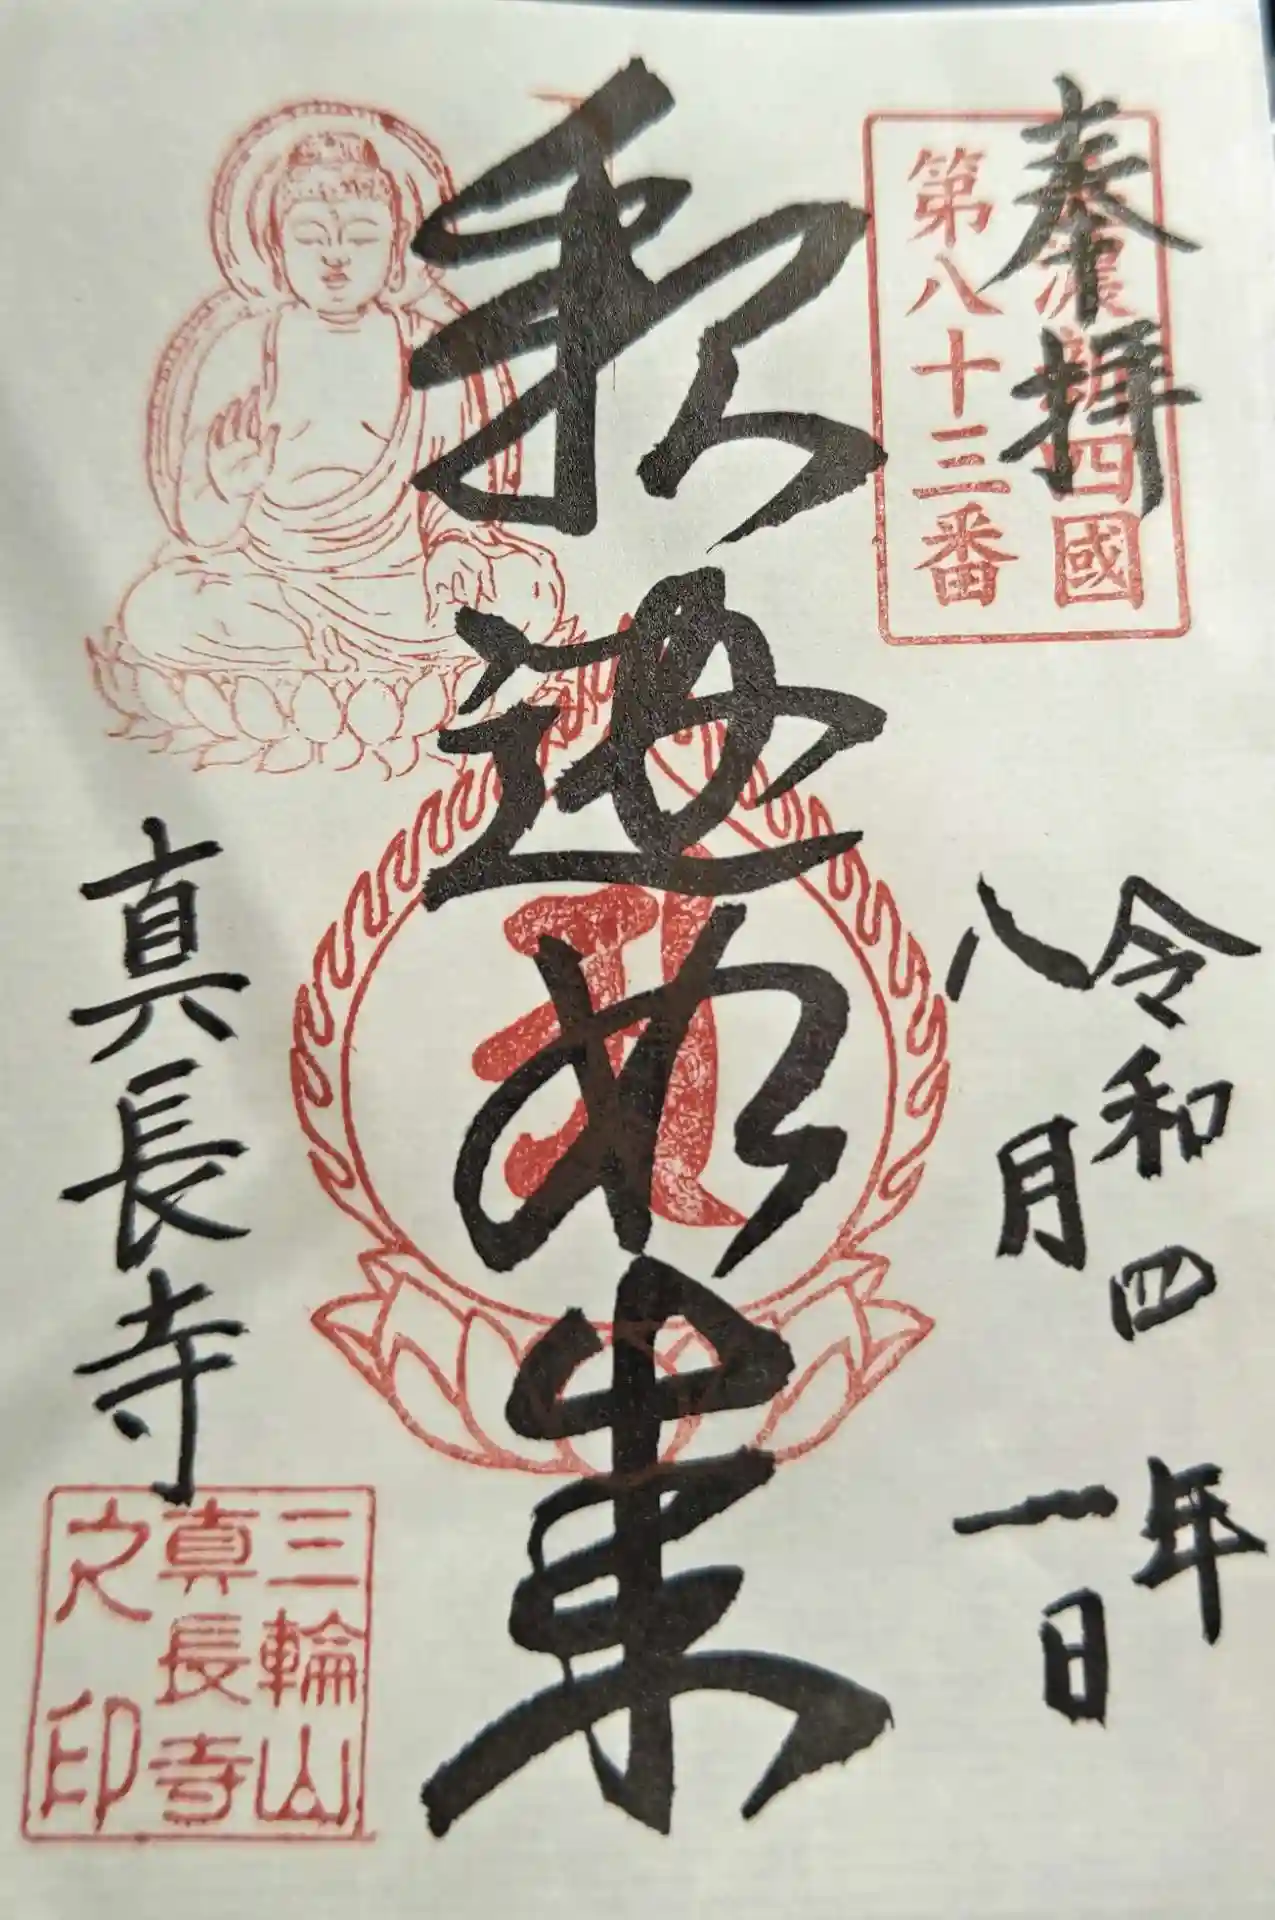 奉拝
美濃新四國
第八十三番
令和四年
八月一日
釈迦如来
真長寺
三輪山
真長寺
之印